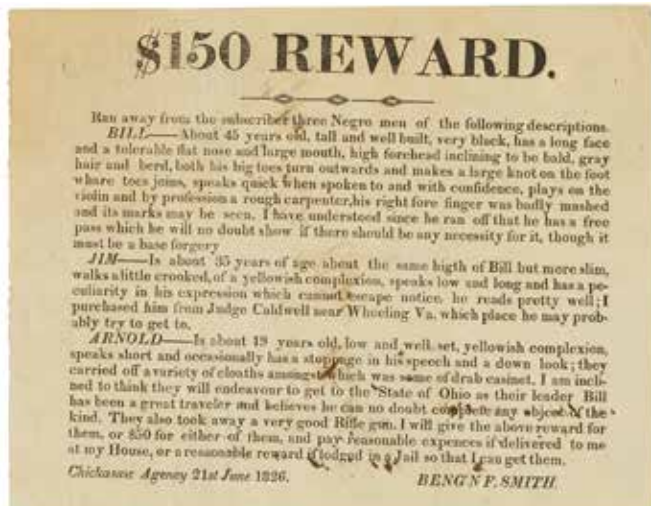 $150 REWARD.
Ran away from the subscriber three Negro men of the following descriptions.
BILL—About 45 years old, tall and well built, very black, has a long face
and a tolerable flat nose and large mouth, high forehead inclining to be bald, gray
hair and berd, both his big toes turn outwards and makes a large knot on the foot
whare toes joins, speaks quick when spoken to and with confidence, plays on the
violin and by profession a rough carpenter, his right fore finger was badly mashed
and its marks may be seen. I have understood since he ran off that he has a free
pass which he will no doubt show if there should be any necessity for it, though it
must be a base forgery
JIM—Is about 35 years of age about the same higth of Bill but more slim,
walks a little crooked, of a yellowish complexion, speaks low and long and has a pe-
culiarity in his expression which cannot escape notice, he reads pretty well; I
purchased him from Judge Caldwell near Wheeling Va. which place he may prob-
ably try to get to.
ARNOLD—Is about 19 years old, low and well set, yellowish complexion,
speaks short and occasionally has a stoppage in his speech and a down look; they
carried off a variety of cloaths amongst which was some of drab casinet. I am incli-
ned to think they will endeavour to get to the State of Ohio as their leader Bill
has been a great traveler and believes he can no doubt any object of the
kind. They also took away a very good Rifle gun. I will give the above reward for
them, or $50 for either of them, and pay reasonable expences if delivered to me
at my House, or a reasonable reward if lodged in a Jail so that I can get them.
Chickasaw Agency 21st June 1826. BENG'N F. SMITH.